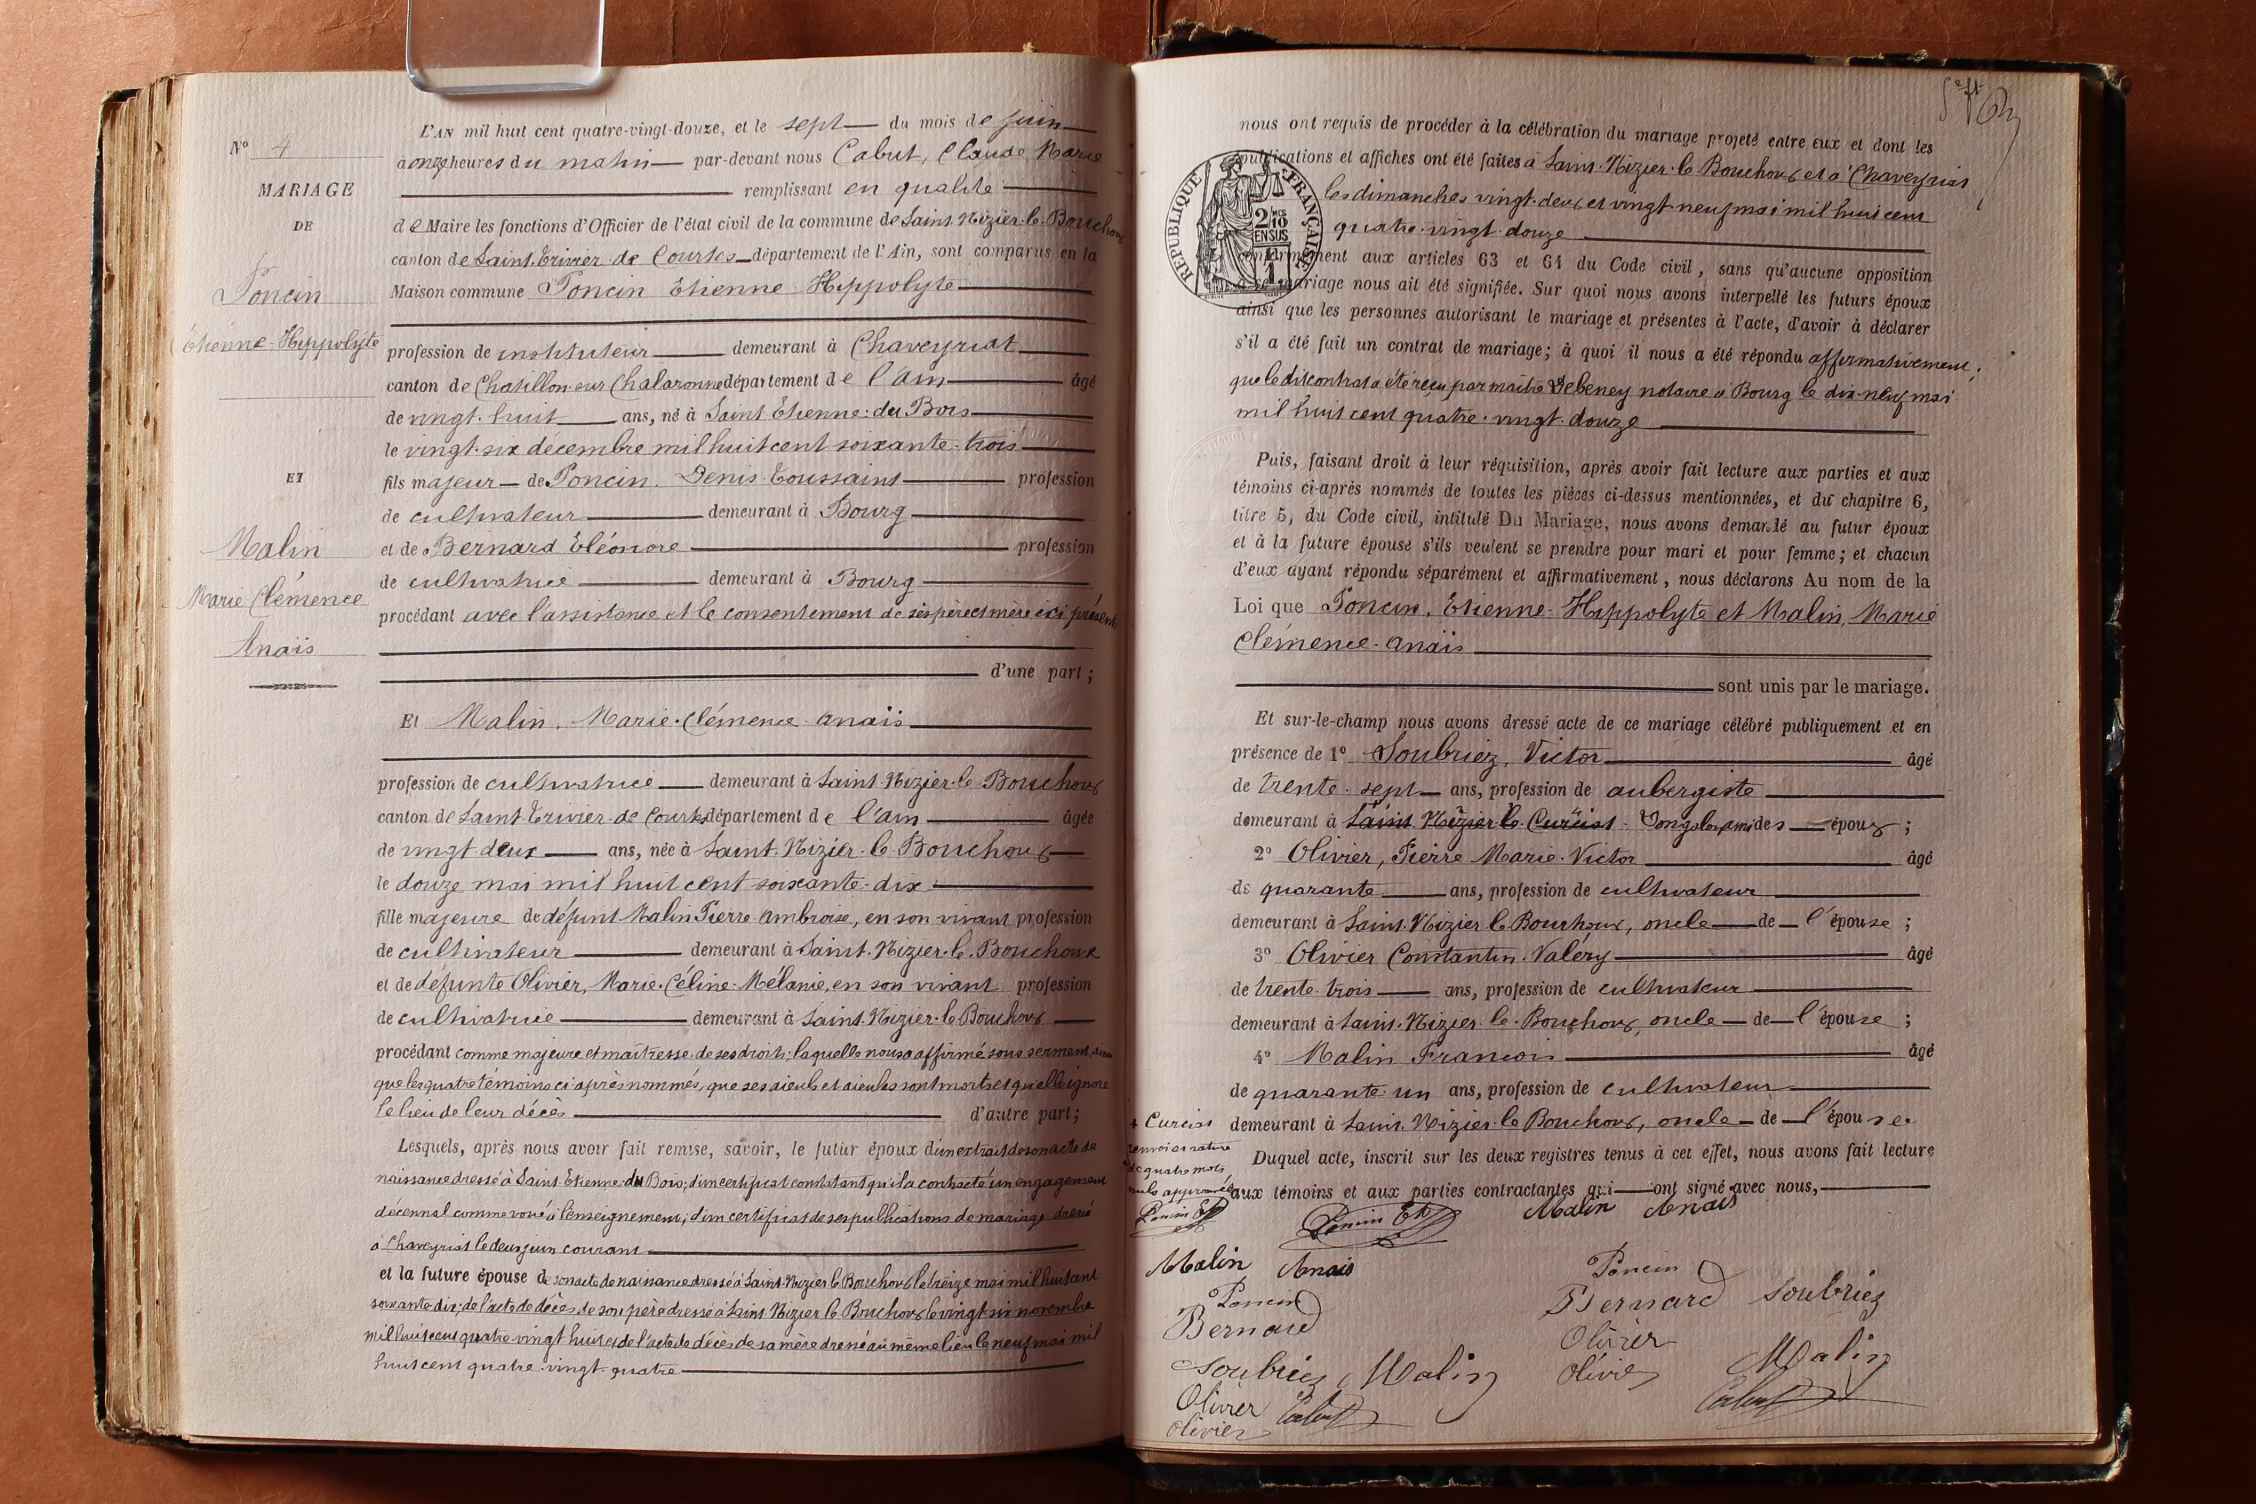 N° 4
MARIAGE
DE
Poncin
Etienne-Hippolyte
ET
Malin
Marie Clémence
Anaïs
L'AN mil huit cent quatre-vingt-douze, et le sept du mois de juin
à onze heures du matin par-devant nous Cabut, Claude Marie
remplissant en qualité
de Maire les fonctions d'Officier de l'état civil de la commune de Saint-Nizier-le-Bouchoux
canton de Saint-Trivier de Courtes département de l'Ain, sont comparus en la
Maison commune Poncin Etienne Hippolyte
profession de instituteur demeurant à Chaveyriat
canton de Chatillon-sur-Chalaronne département de l'Ain âgé
de vingt-huit ans, né à Saint Etienne-du Bois
le vingt-six décembre mil huit cent soixante-trois
fils majeur de Poncin. Denis Toussaint profession
de cultivateur demeurant à Bourg
et de Bernard Eléonore profession
de cultivatrice demeurant à Bourg
procédant avec l'assistance et le consentement de ses père et mère ici présents
d'une part ;
Et Malin, Marie-Clémence Anaïs
profession de cultivatrice demeurant à Saint-Nizier-le Bouchoux
canton de Saint-Trivier-de Courtes département de l'Ain âgée
de vingt deux ans, née à Saint-Nizier-le-Bouchoux
le douze mai mil huit cent soixante-dix
fille majeure de défunt Malin Pierre Ambroise, en son vivant profession
de cultivateur demeurant à Saint-Nizier-le-Bouchoux
et de défunte Olivier, Marie-Céline-Mélanie, en son vivant profession
de cultivatrice demeurant à Saint-Nizier-le Bouchoux
procédant comme majeure et maîtresse de ses droits; laquelle nous a affirmé sous serment, ainsi
que les quatre témoins ci après nommés, que ses aïeuls et aïeules sont morts et qu'elle ignore
le lieu de leur décès d'autre part ;
Lesquels, après nous avoir fait remise, savoir, le futur époux d'un extrait de son acte de
naissance dressé à Saint-Etienne-du Bois; d'un certificat constatant qu'il a contracté un engagement
décennal comme voué à l'enseignement; d'un certificat de ses publications de mariage dressé
à Chaveyriat le deux juin courant
et la future épouse de son acte de naissance dressé à Saint-Nizier le Bouchoux le treize mai mil huit cent
soixante dix; de l'acte de décès de son père dressé à Saint Nizier le Bouchoux le vingt-six novembre
mil huit cent quatre vingt huit et de l'acte de décès de sa mère dressé au même lieu le neuf mai mil
huit cent quatre-vingt-quatre
nous ont requis de procéder à la célébration du mariage projeté entre eux et dont les
publications et affiches ont été faites à Saint-Nizier-le Bouchoux et à Chaveyriat
les dimanches vingt-deux et vingt neuf mai mil huit cent
quatre-vingt-douze
RÉPUBLIQUE FRANÇAISE
2/10 EN SUS
conformément aux articles 63 et 64 du Code civil, sans qu'aucune opposition
à ce mariage nous ait été signifiée. Sur quoi nous avons interpellé les futurs époux
ainsi que les personnes autorisant le mariage et présentes à l'acte, d'avoir à déclarer
s'il a été fait un contrat de mariage; à quoi il nous a été répondu affirmativement;
que le dit contrat a été reçu par maître Debeney notaire à Bourg le dix-neuf mai
mil huit cent quatre-vingt-douze
Puis, faisant droit à leur réquisition, après avoir fait lecture aux parties et aux
témoins ci-après nommés de toutes les pièces ci-dessus mentionnées, et du chapitre 6,
titre 5, du Code civil, intitulé Du Mariage, nous avons demandé au futur époux
et à la future épouse s'ils veulent se prendre pour mari et pour femme ; et chacun
d'eux ayant répondu séparément et affirmativement, nous déclarons Au nom de la
Loi que Poncin, Etienne-Hippolyte et Malin, Marie
Clémence-Anaïs
sont unis par le mariage.
Et sur-le-champ nous avons dressé acte de ce mariage célébré publiquement et en
présence de 1° Soubriez, Victor âgé
de trente-sept ans, profession de aubergiste
demeurant à Saint-Nizier le Curciat-Dongalon ami des époux ;
2° Olivier, Pierre Marie-Victor âgé
de quarante ans, profession de cultivateur
demeurant à Saint-Nizier le Bouchoux, oncle de l'épouse ;
3° Olivier Constantin-Valéry âgé
de trente trois ans, profession de cultivateur
demeurant à Saint-Nizier-le-Bouchoux, oncle de l'épouse ;
4° Malin François âgé
de quarante-un ans, profession de cultivateur
demeurant à Saint-Nizier-le Bouchoux, oncle de l'épouse.
Duquel acte, inscrit sur les deux registres tenus à cet effet, nous avons fait lecture
aux témoins et aux parties contractantes qui ont signé avec nous,
+ Curciat
renvoi et rature
de quatre mots
nuls approuvés
Poncin Et
Poncin Et
Malin Anaïs
Malin Anaïs
Poncin
Poncin
Bernard
Bernard
Soubriez
Soubriez
Malin
Olivier
Olivier
Malin
Olivier
Cabut
Cabut
Olivier